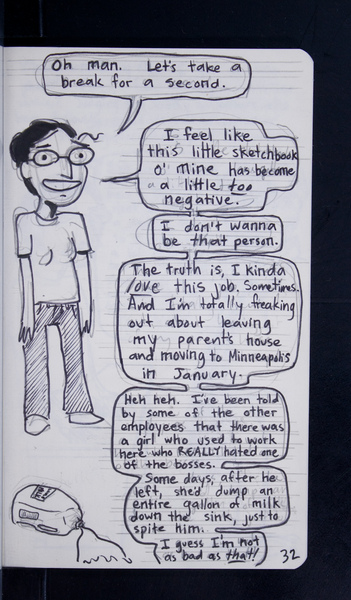 Oh man. Let's take a
break for a second.
I feel like
this little sketchbook
o' mine has become
a little too
negative.
I don't wanna
be that person.
The truth is, I kinda
love this job. Sometimes.
And I'm totally freaking
out about leaving
my parent's house
and moving to Minneapolis
in January.
Heh heh. I've been told
by some of the other
employees that there was
a girl who used to work
here who REALLY hated one
of the bosses.
Some days, after he
left, she'd dump an
entire gallon of milk
down the sink, just to
spite him.
I guess I'm not
as bad as that!
32